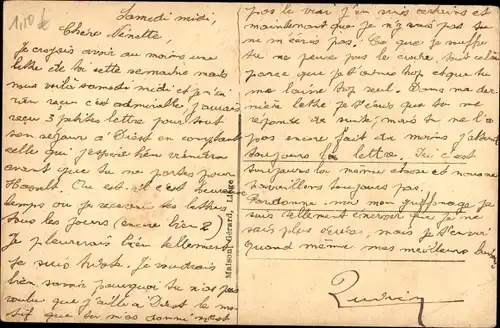 1,50 €
Samedi midi,
Chère Nénette,
Je croyais avoir au moins une
lettre de toi cette semaine mais
nous voilà samedi midi et je n'ai
rien reçu c'est admirable j'aurais
reçu 3 petites lettres pour tout
ton séjour à Diest en comptant
celle qui j'espère bien viendra
avant que tu ne partes pour
Hasselt. Où est-il c'est heureux
temps ou je recevais des lettres
tous les jours (encore bien 2)
Je pleurerais bien tellement
je suis triste. Je voudrais
bien savoir pourquoi tu n'as pas
voulu que j'aille à Diest le mo-
tif que tu m'as donné n'est
Maison Gérard, Liège
pas le vrai j'en suis certain et
maintenant que je n'y vais pas tu
ne m'écris pas! Ce que je souffre
tu ne peux pas le croire, tout cela
parce que je t'aime trop et que tu
me laisse trop seul. Dans ma der-
nière lettre je t'avais que tu me
réponde de suite, mais tu ne l'a
pas encore fait du moins j'attend
toujours la lettre. Ici c'est
toujours la même chose et nous ne
travaillons toujours pas.
Pardonne moi mon griffonage je
suis tellement énervé que je ne
sais plus écrire, mais je t'envoie
quand même mes meilleurs